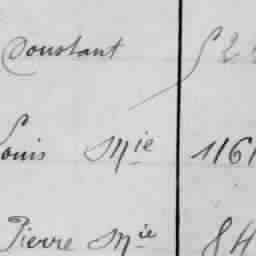 Constant
Louis Mie 1161
Pierre Mie 84